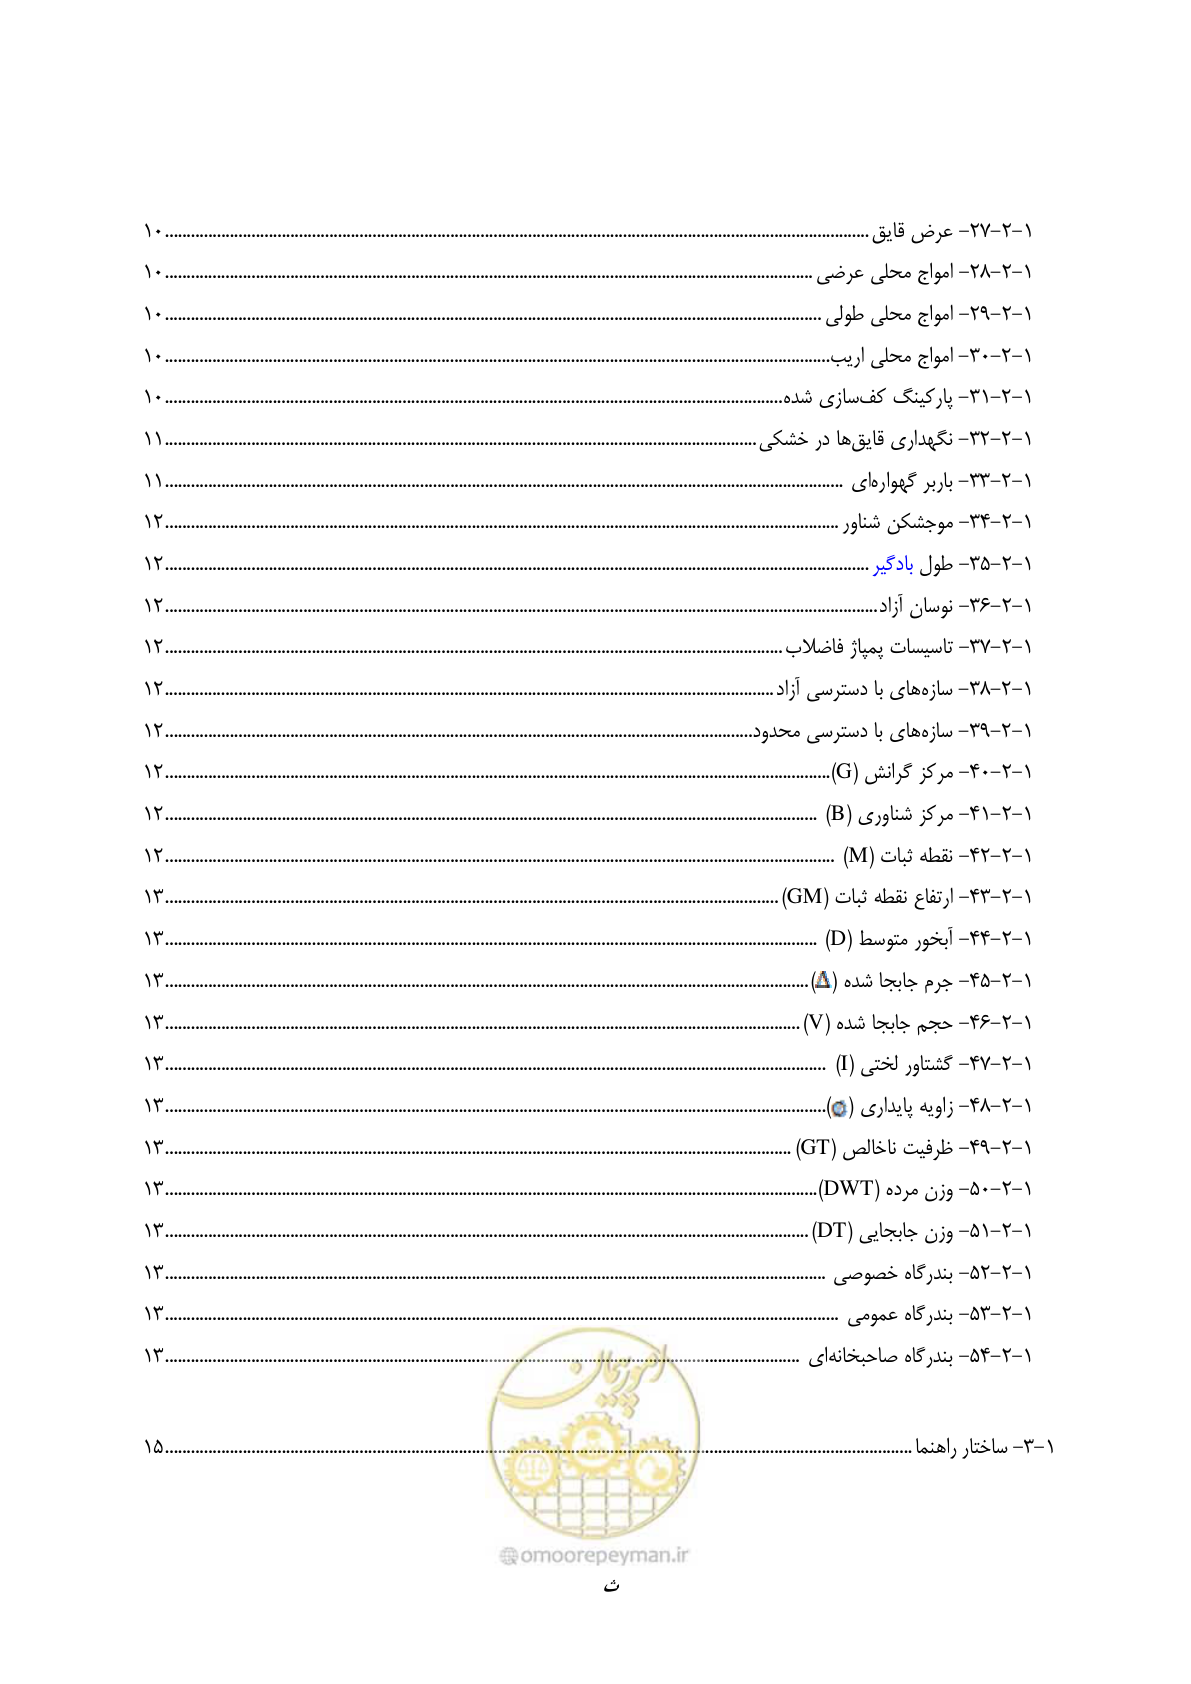 ۱-۲-۲۷- عرض قایق ........ ۱۰
۱-۲-۲۸- امواج محلی عرضی ........ ۱۰
۱-۲-۲۹- امواج محلی طولی ........ ۱۰
۱-۲-۳۰- امواج محلی اریب ........ ۱۰
۱-۲-۳۱- پارکینگ کف‌سازی شده ........ ۱۰
۱-۲-۳۲- نگهداری قایق‌ها در خشکی ........ ۱۱
۱-۲-۳۳- باربر گهواره‌ای ........ ۱۱
۱-۲-۳۴- موجشکن شناور ........ ۱۲
۱-۲-۳۵- طول بادگیر ........ ۱۲
۱-۲-۳۶- نوسان آزاد ........ ۱۲
۱-۲-۳۷- تاسیسات پمپاژ فاضلاب ........ ۱۲
۱-۲-۳۸- سازه‌های با دسترسی آزاد ........ ۱۲
۱-۲-۳۹- سازه‌های با دسترسی محدود ........ ۱۲
۱-۲-۴۰- مرکز گرانش (G) ........ ۱۲
۱-۲-۴۱- مرکز شناوری (B) ........ ۱۲
۱-۲-۴۲- نقطه ثبات (M) ........ ۱۲
۱-۲-۴۳- ارتفاع نقطه ثبات (GM) ........ ۱۳
۱-۲-۴۴- آبخور متوسط (D) ........ ۱۳
۱-۲-۴۵- جرم جابجا شده (Δ) ........ ۱۳
۱-۲-۴۶- حجم جابجا شده (V) ........ ۱۳
۱-۲-۴۷- گشتاور لختی (I) ........ ۱۳
۱-۲-۴۸- زاویه پایداری () ........ ۱۳
۱-۲-۴۹- ظرفیت ناخالص (GT) ........ ۱۳
۱-۲-۵۰- وزن مرده (DWT) ........ ۱۳
۱-۲-۵۱- وزن جابجایی (DT) ........ ۱۳
۱-۲-۵۲- بندرگاه خصوصی ........ ۱۳
۱-۲-۵۳- بندرگاه عمومی ........ ۱۳
۱-۲-۵۴- بندرگاه صاحبخانه‌ای ........ ۱۳
امورپیمان
۱-۳- ساختار راهنما ........ ۱۵
@omoorepeyman.ir
ث